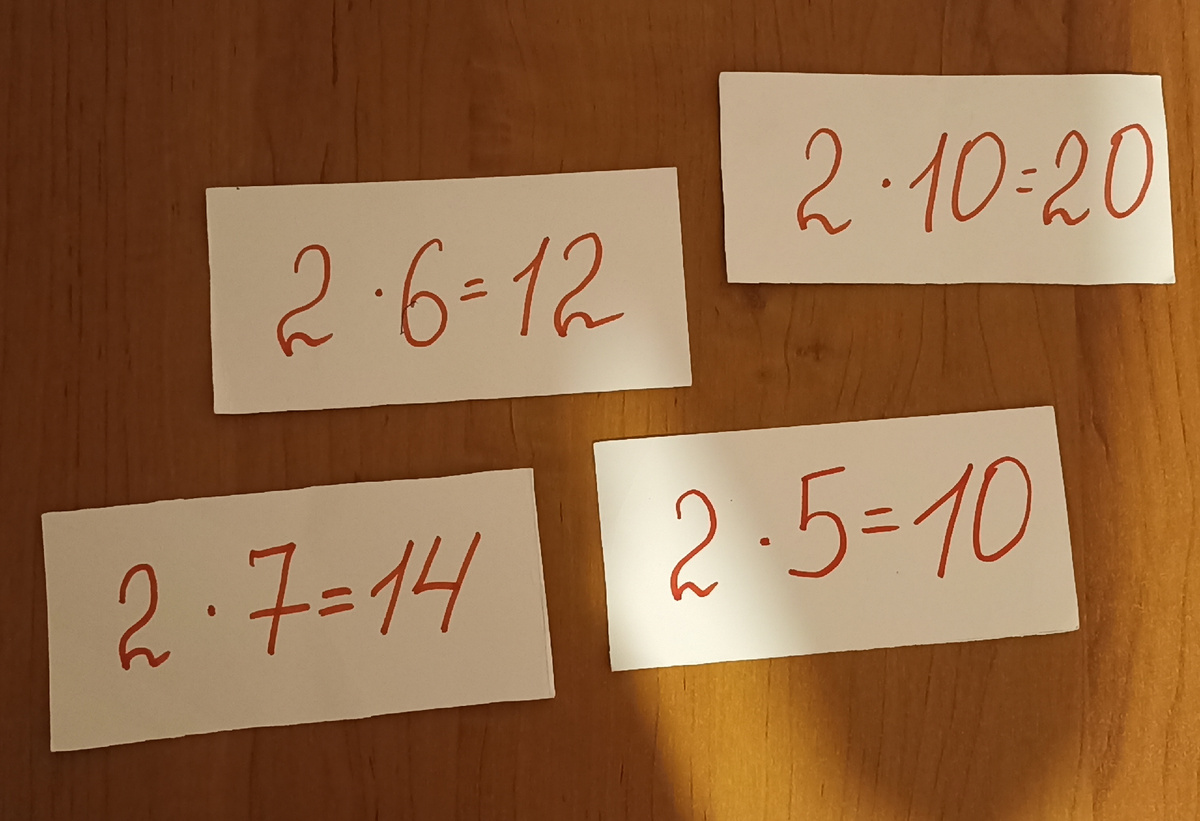 2 · 10 = 20
2 · 6 = 12
2 · 7 = 14
2 · 5 = 10